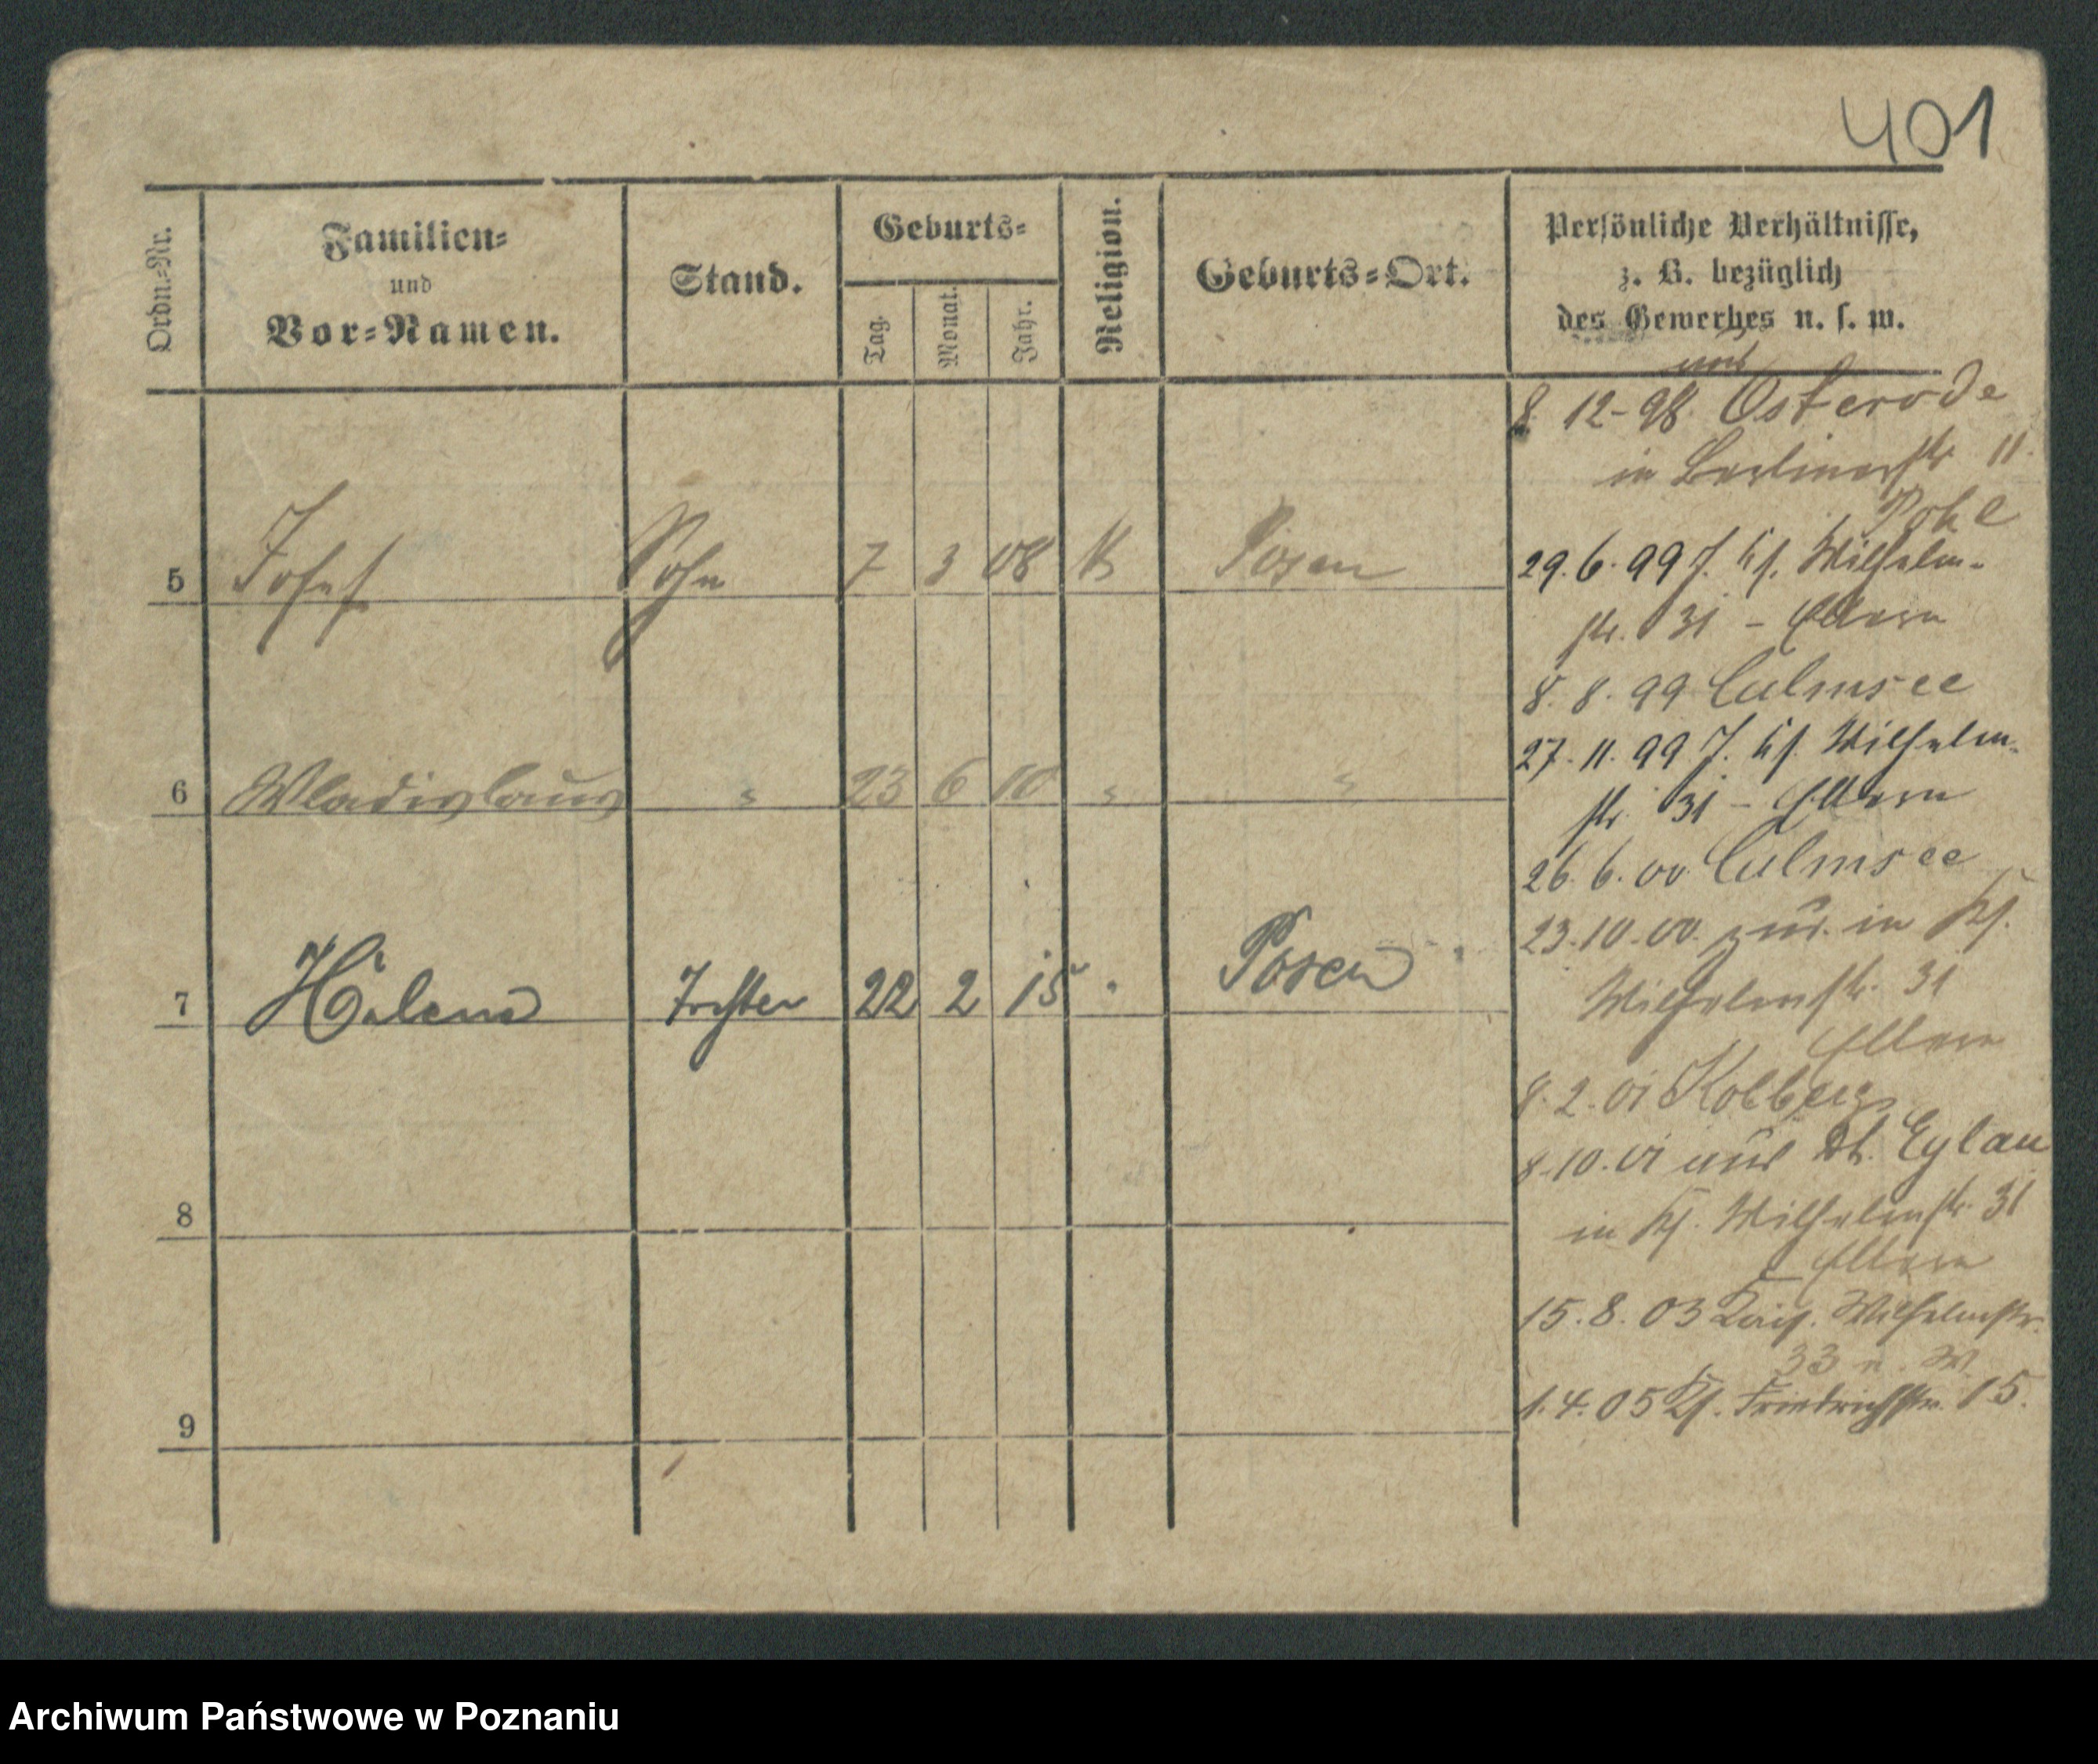 401
Ordn.-Nr.
Familien-
und
Vor-Namen.
Stand.
Geburts-
Tag.
Monat.
Jahr.
Religion.
Geburts-Ort.
Persönliche Verhältnisse,
z. B. bezüglich
des Gewerbes u. s. w.
5 Josef Sohn 7 3 08 K Posen
6 Wladislaus " 23 6 10 " "
7 Helene Tochter 22 2 15 " Posen
8
9
aus
8. 12-98. Osterode
in Berlinerstr 11.
29. 6. 99 J. Wilhelm-
str. 31 - Eltern
8. 8. 99 Culmsee
27. 11. 99 J. Wilhelm-
str. 31 - Eltern
26. 6. 00. Culmsee
23. 10. 00. zur. in Kf.
Wilhelmstr. 31
Eltern
8. 2. 01 Kolberg
8. 10. 01 aus Dt. Eylau
in Kf. Wilhelmstr. 31
Eltern
15. 8. 03 Wilhelmstr.
33
1. 4. 05 Kf. Friedrichstr. 15.
Archiwum Państwowe w Poznaniu